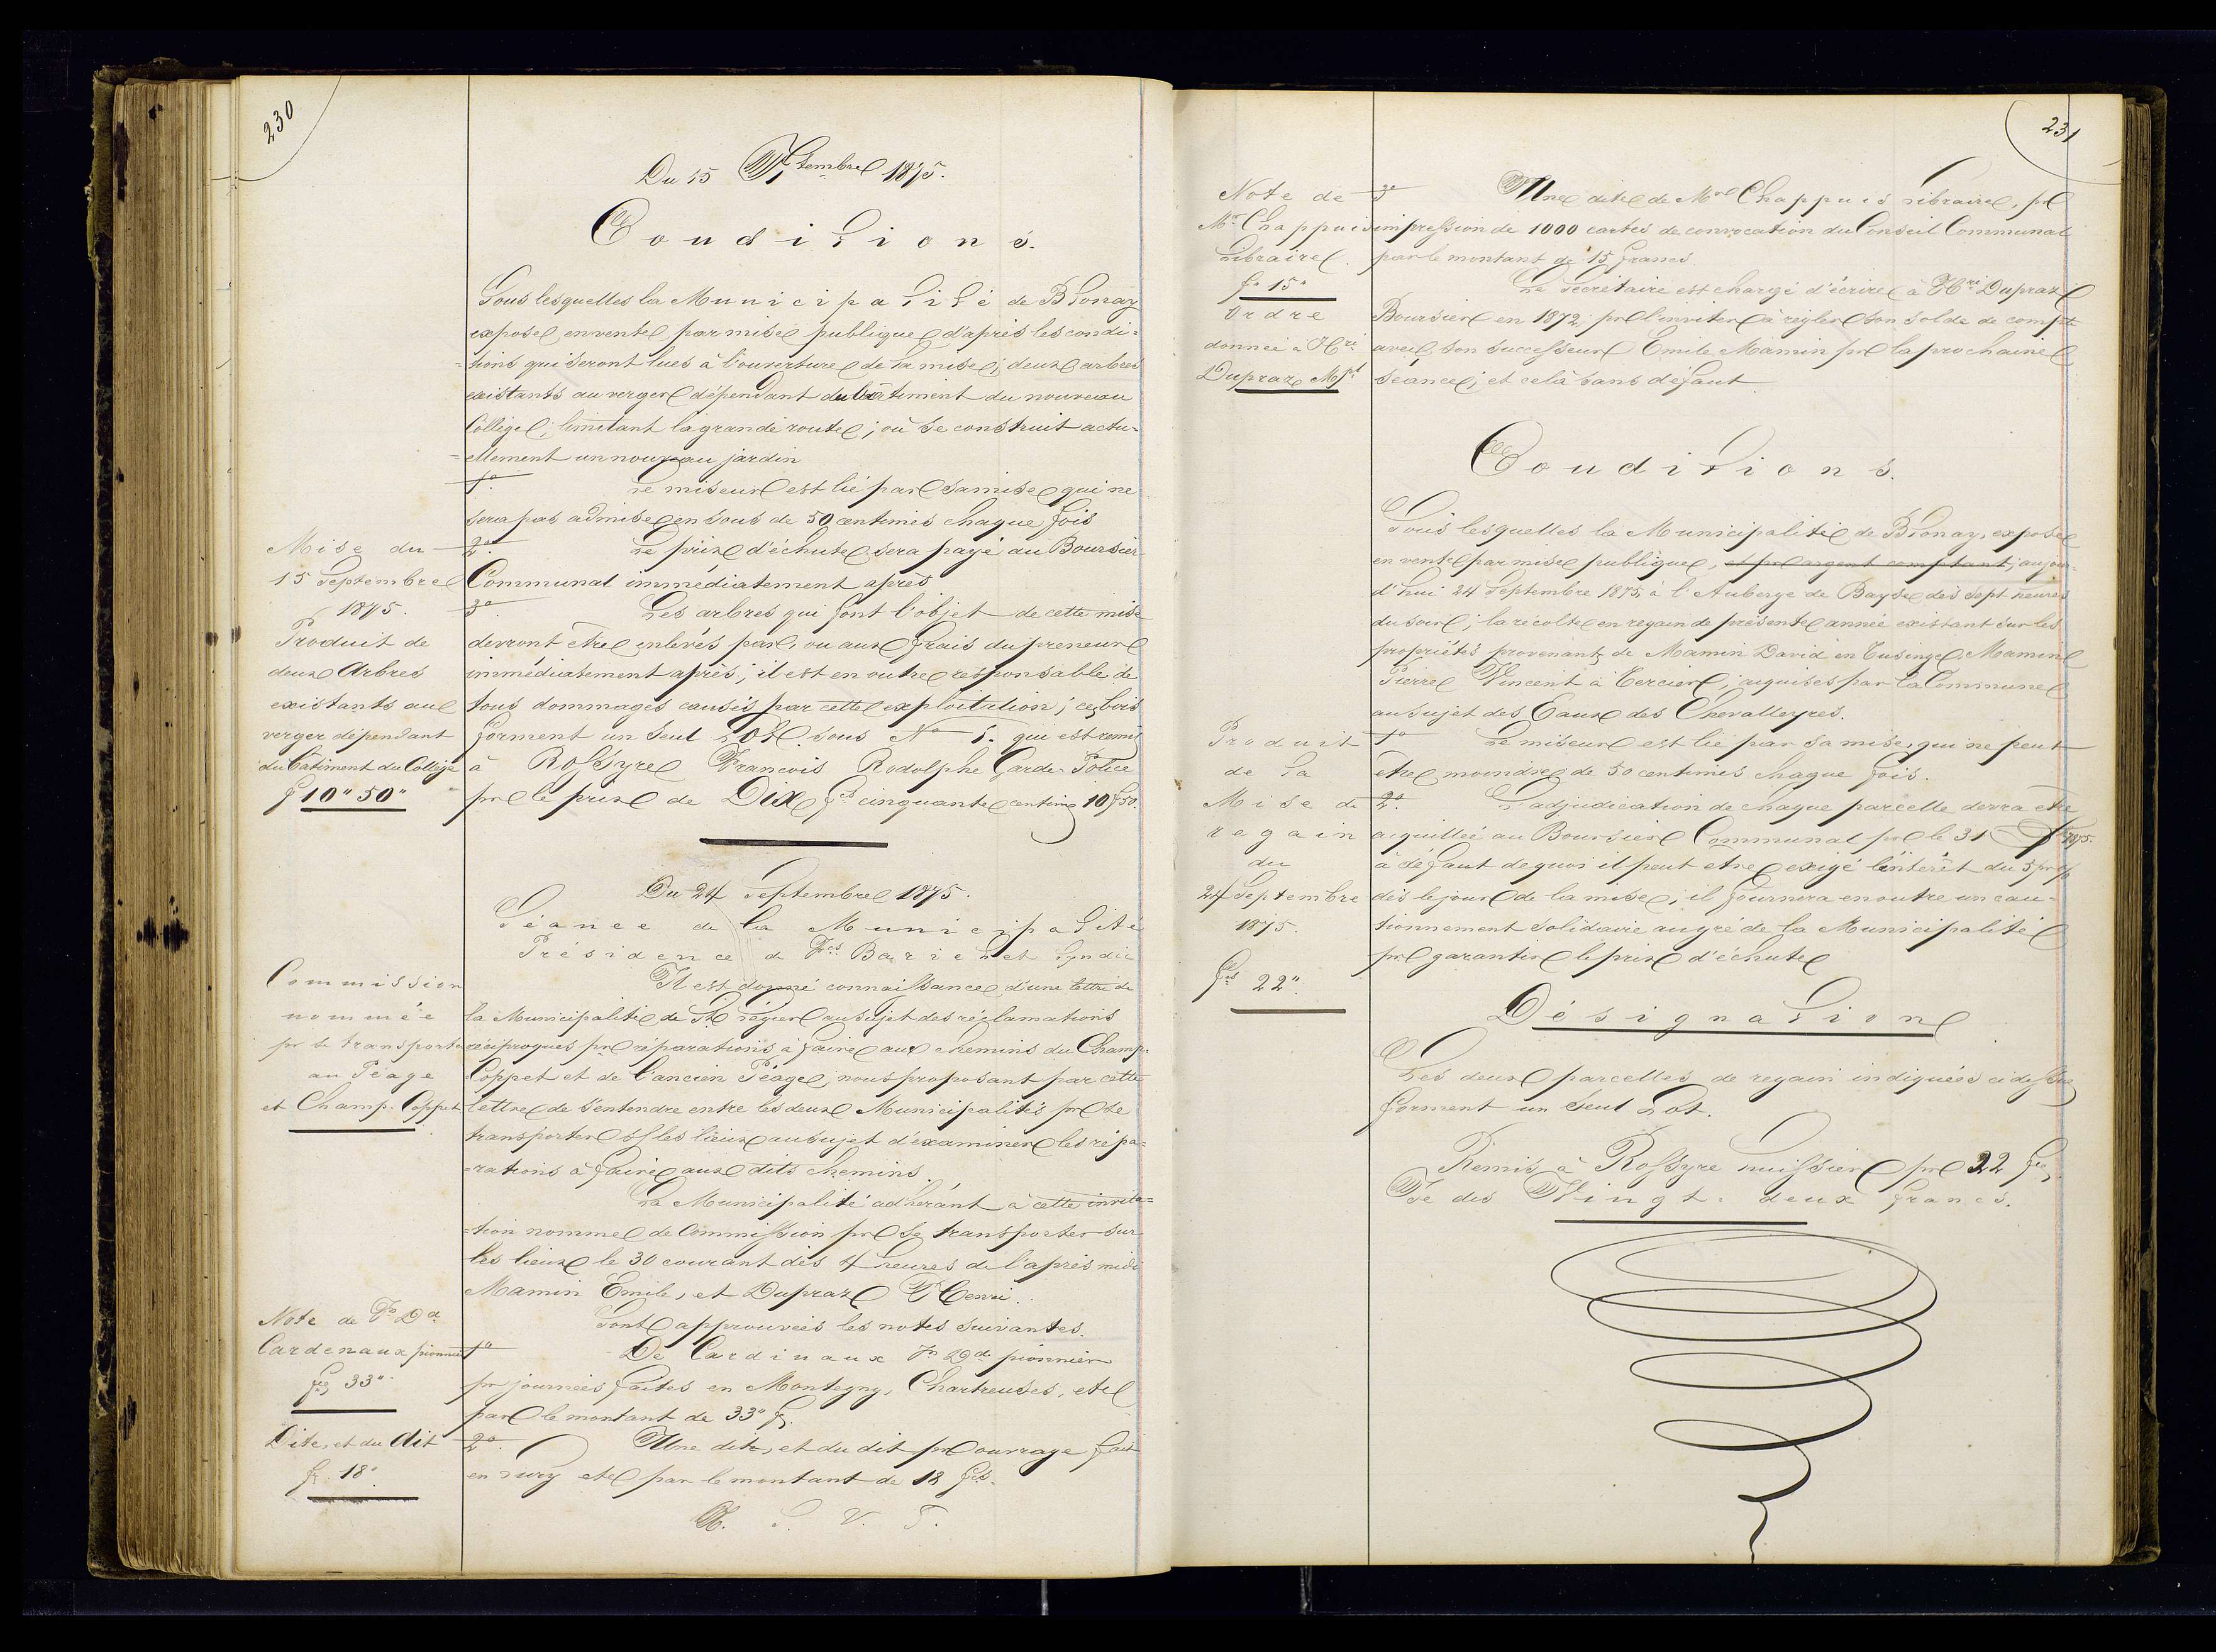 230
Du 15 Septembre 1875.
Conditions.
Sous lesquelles la Municipalité de Blonay
expose en vente par mise publique d'après les condi=
=tions qui seront lues à l'ouverture de la mise; deux arbres
existants au verger dépendant du bâtiment du nouveau
Collège; limitant la grande route; où se construit actu=
=ellement un nouveau jardin
1o. Le miseur est lié par sa mise qui ne
sera pas admise en sous de 50 centimes chaque fois
Mise du
15 Septembre
1875.
Produit de
deux Arbres
existants au
verger dépendant
du batiment du Collège
f 10" 50"
2o. Le prix d'échute sera payé au Boursier
Communal immédiatement après
3o. Les arbres qui font l'objet de cette mise
devront être enlevés par, ou aux frais du preneur
immédiatement après; il est en outre responsable de
tous dommages causés par cette exploitation; ces bois
forment un seul Lot sous No 1. qui est remis
à Rossyre François Rodolphe Garde-Police
pr le prix de Dix fcs cinquante centimes 10 f 50.
Du 24 Septembre 1875.
Séance de la Municipalité
Présidence d Fcs Barichet Syndic
Commission
nommée
pr se transporter
au Péage
et Champ. Coppet
Il est donné connaissance d'une lettre de
la Municipalité de St Légier au sujet des réclamations
réciproques pr réparations à faire aux chemins du Champ-
Coppet et de l'ancien Péage; nous proposant par cette
lettre de s'entendre entre les deux Municipalités pr se
transporter sr les lieux au sujet d'examiner les répa=
=rations à faire aux dits chemins.
La Municipalité adhérant à cette invita=
=tion nomme de Commission pr se transporter sur
les lieux le 30 courant dès 4 heures de l'après midi
Mamin Emile, et Dupraz Henri.
Sont approuvées les notes suivantes.
Note de Jn Dd
Cardenaux pionnier
fcs 33".
1o De Cardinaux Jn Dd pionnier
pr journées faites en Montegny, Chartreuses, etc
par le montant de 33" fs.
Dite, et du dit
fr. 18"
2o. Une dite, et du dit pr ouvrage fait
en etc par le montant de 18 fcs.
S. V. T.
231
Note de
Mr Chappuis
Libraire.
fr 15"
3o Une dite de Mr Chappuis Libraire, pr
impression de 1000 cartes de convocation du Conseil Communal
par le montant de 15 francs.
Ordre
donnée à Hri
Dupraz Mpl
Le Secrétaire est chargé d'écrire à Hri Dupraz
Boursier en 1872, pr l'inviter à régler son solde de compte
avec son successeur Emile Mamin pr la prochaine
séance; et celà sans défaut
Conditions.
Sous lesquelles la Municipalité de Blonay, expose
en vente par mise publique, et pr argent comptant, aujour-
d'hui 24 Septembre 1875, à l'Auberge de Bayse dès sept heures
du soir; la récolte en regain de présente année existant sur les
propriétés provenants de Mamin David en Tusinge, Mamin
Pierre Vincent à Tercier, aquises par la Commune
au sujet des Eaux des Chevalleyres.
Produit
de la
Mise de
regain
du
24 Septembre
1875.
fcs 22".
1o Le miseur est lié par sa mise, qui ne peut
être moindre de 50 centimes chaque fois.
2o. L'adjudication de chaque parcelle devra être
aquittée au Boursier Communal pr le 31 1875.
à défaut de quoi il peut être exigé l'intérêt du 5 pr %
dès le jour de la mise; il fournera en outre un cau=
tionnement solidaire au gré de la Municipalité
pr garantir le prix d'échute
Désignation
Les deux parcelles de regain indiquées ci dessus
forment un seul Lot.
Remis à Rossyre huissier pr 22 fcs
Je dis Vingt-deux francs.